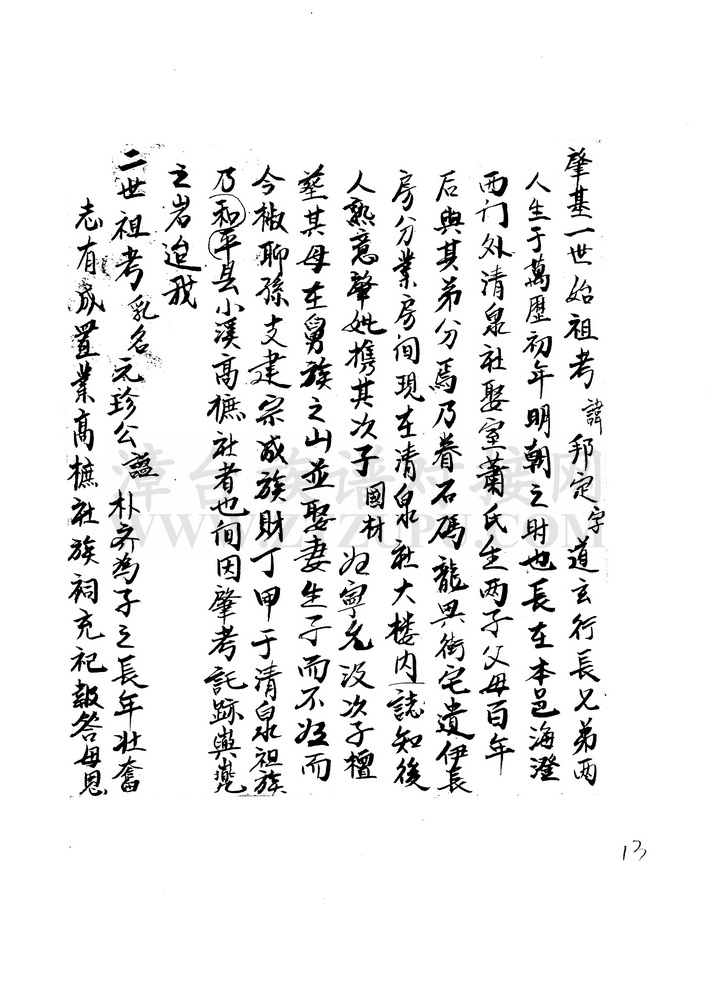 肇基一世始祖考諱邦定字道玄行長兄弟兩
人生于萬歷初年明朝之时也長在本邑海澄
西门外清泉社娶室蕭氏生两子父母百年
后與其弟分焉乃眷石碼龍興街宅遺伊長
房分業房间現在清泉社大楼内誌知後
人熟意肇妣携其次子國材迯寧允没次子檀
塟其母在舅族之山並娶妻生子而不迯而
今椒聊孫支建宗成族財丁甲于清泉祖族
乃和平县小溪高樜社者也间因肇考託跡與
之岩迨我
二世祖考乳名元珍公諡朴齐為子之長年壮奮
志有成置業高樜社族祠充祀報答母恩
漳台族谱对接网
WWW.ZTZUPU.COM
13